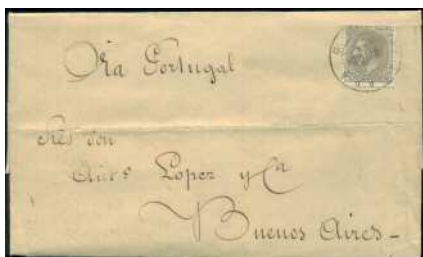 Via Portugal
Sres don
Lopez y Ca
Buenos Aires -